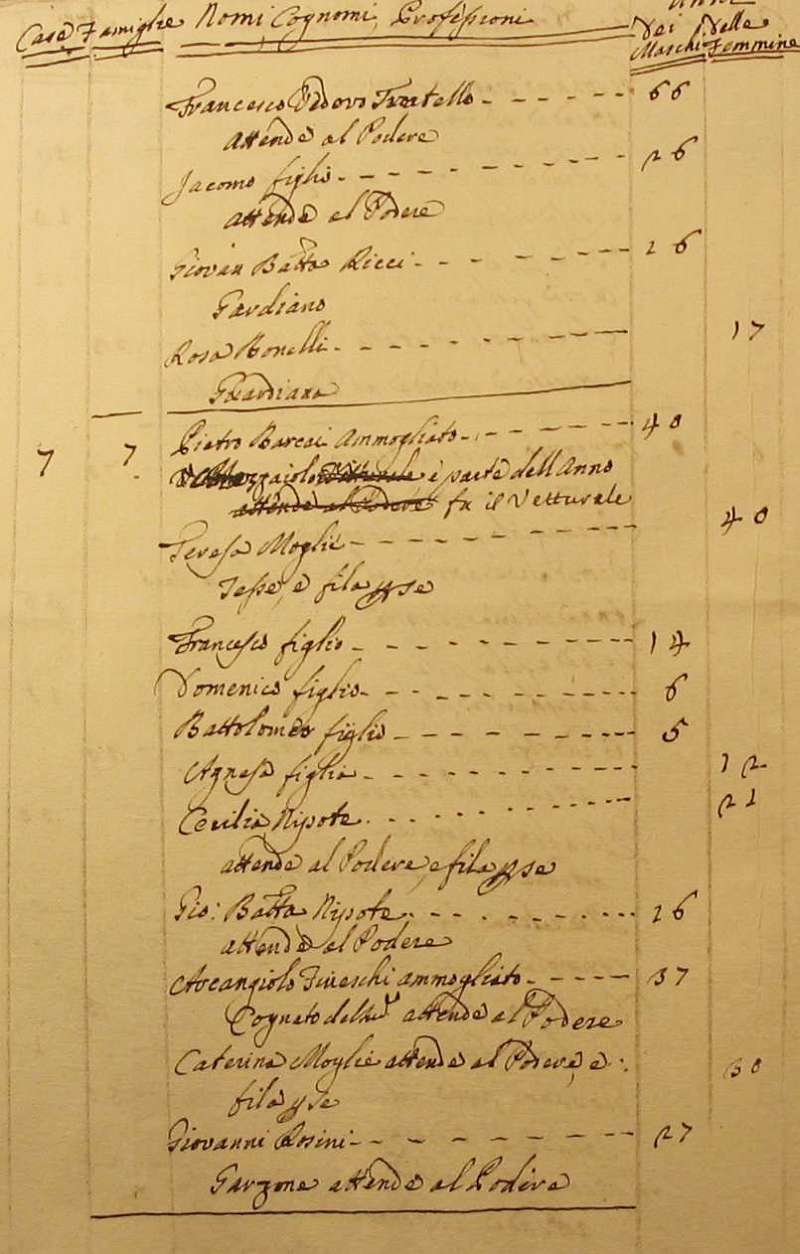 Case Famiglie Nomi, Cognomi, Professioni Anni
Dei Maschi delle Femmine
Francesco Vedovo Fratello 66
attende al Podere
Jacomo figlio 26
attende al Podere
Giovan Batta Ricci 26
Gardiano
Rosa Bonelli 17
Guardiana
7 7 Pietro Barcai Ammogliato 40
è parte dell'Anno
attende al Podere fa il Vetturale
Teresa Moglie 40
Tesse, e fila p se
Francesco figlio 14
Domenico figlio 6
Bartolomeo figlio 5
Agnesa figlia 12
Cecilia Nipote 21
attende al Podere, e fila p se
Gio: Batta Nipote 26
attende al Podere
Arcangiolo Fineschi ammogliato 37
Cognato attende al Podere
Caterina Moglie attende al Podere, e 30
fila p se
Giovanni Rosini 27
Garzone attende al Podere